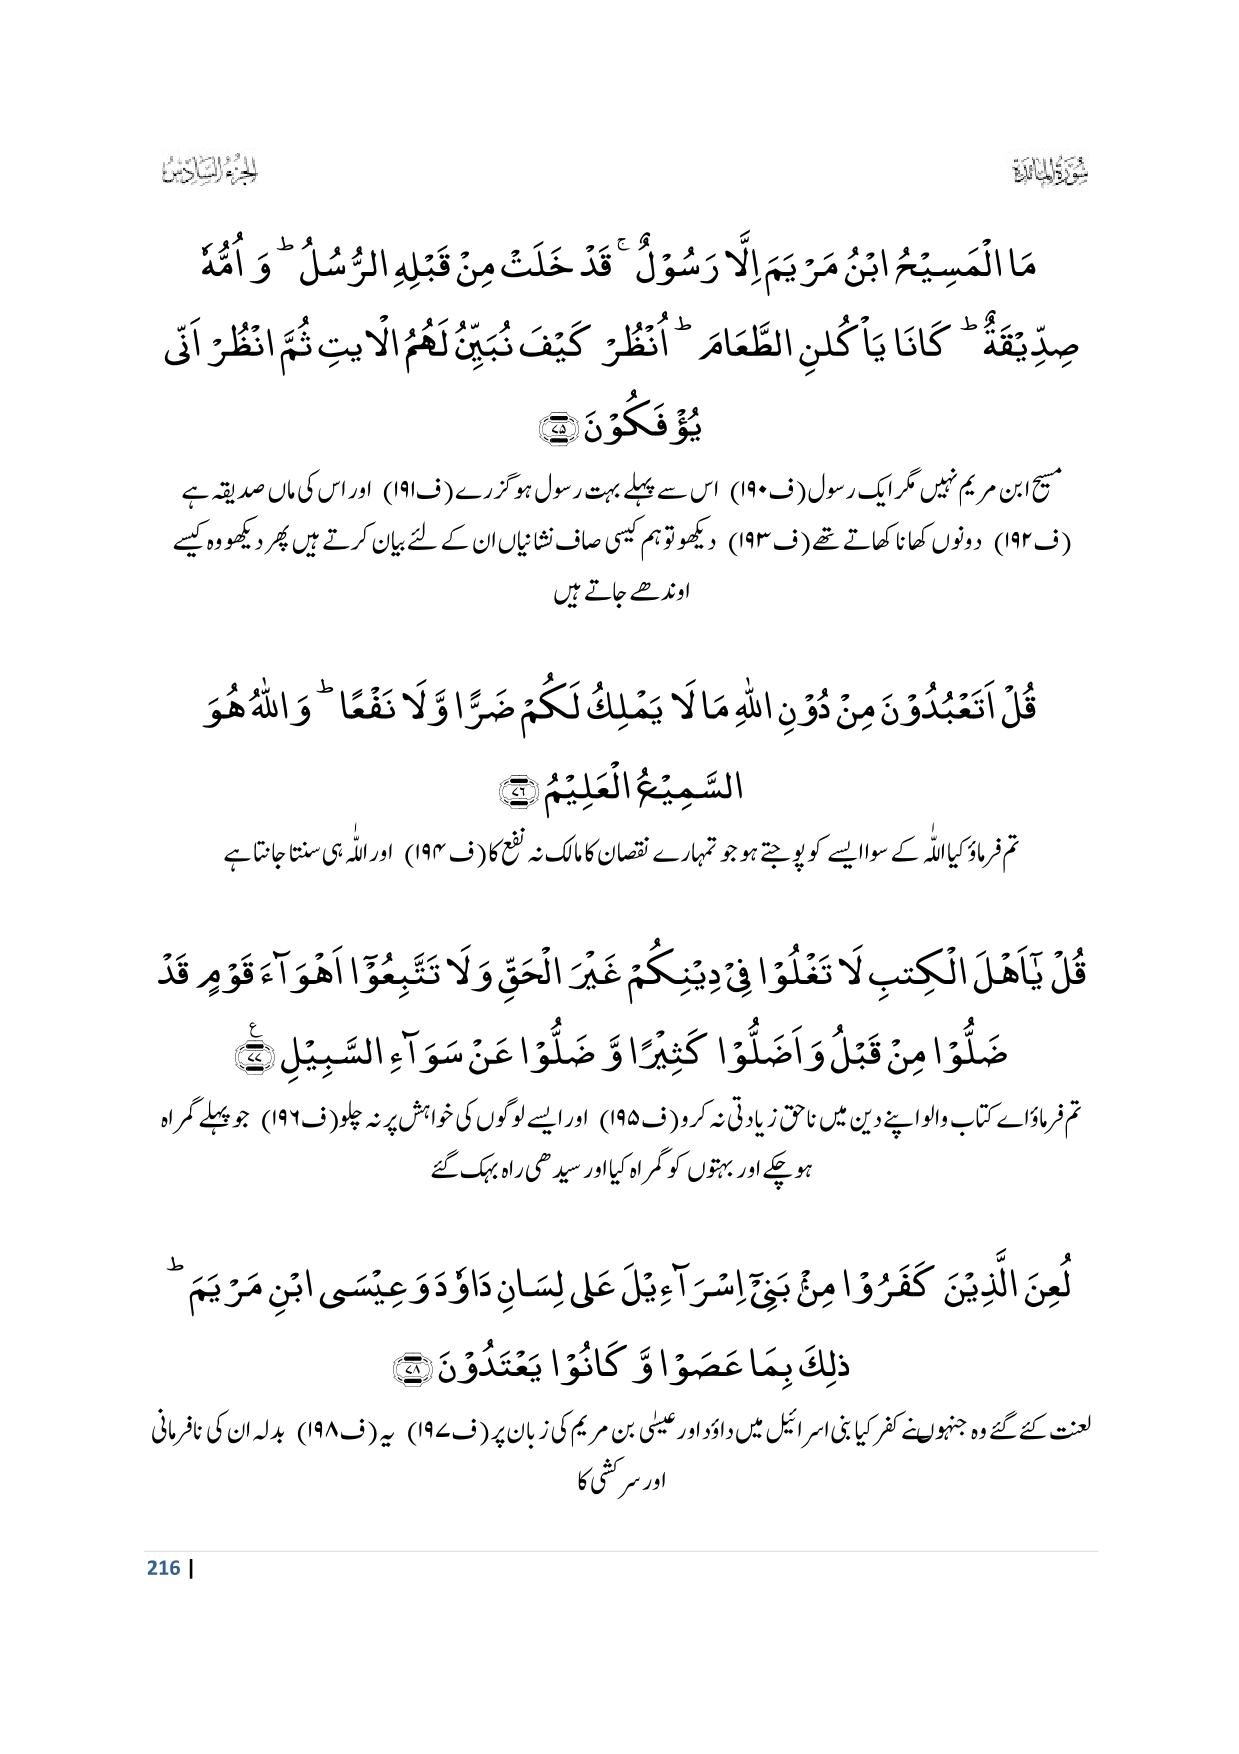 سُوْرَةُ الْمَائِدَة
الجزء السَّادِس
مَا الْمَسِیْحُ ابْنُ مَرْیَمَ اِلَّا رَسُوْلٌ ۚ قَدْ خَلَتْ مِنْ قَبْلِهِ الرُّسُلُ ؕ وَ اُمُّهٗ
صِدِّیْقَةٌ ؕ كَانَا یَاْكُلٰنِ الطَّعَامَ ؕ اُنْظُرْ كَیْفَ نُبَیِّنُ لَهُمُ الْاٰیٰتِ ثُمَّ انْظُرْ اَنّٰى
یُؤْفَكُوْنَ ﴿۷۵﴾
مسیح ابن مریم نہیں مگر ایک رسول (ف۱۹۰) اس سے پہلے بہت رسول ہو گزرے (ف۱۹۱) اور اس کی ماں صدیقہ ہے
(ف۱۹۲) دونوں کھانا کھاتے تھے (ف۱۹۳) دیکھو تو ہم کیسی صاف نشانیاں ان کے لئے بیان کرتے ہیں پھر دیکھو وہ کیسے
اوندھے جاتے ہیں
قُلْ اَتَعْبُدُوْنَ مِنْ دُوْنِ اللّٰهِ مَا لَا یَمْلِكُ لَكُمْ ضَرًّا وَّ لَا نَفْعًا ؕ وَ اللّٰهُ هُوَ
السَّمِیْعُ الْعَلِیْمُ ﴿۷۶﴾
تم فرماؤ کیا اللّٰہ کے سوا ایسے کو پوجتے ہو جو تمہارے نقصان کا مالک نہ نفع کا (ف۱۹۴) اور اللّٰہ ہی سنتا جانتا ہے
قُلْ یٰۤاَهْلَ الْكِتٰبِ لَا تَغْلُوْا فِیْ دِیْنِكُمْ غَیْرَ الْحَقِّ وَ لَا تَتَّبِعُوْۤا اَهْوَآءَ قَوْمٍ قَدْ
ضَلُّوْا مِنْ قَبْلُ وَ اَضَلُّوْا كَثِیْرًا وَّ ضَلُّوْا عَنْ سَوَآءِ السَّبِیْلِ ﴿۷۷﴾ ع
تم فرماؤ اے کتاب والو اپنے دین میں ناحق زیادتی نہ کرو (ف۱۹۵) اور ایسے لوگوں کی خواہش پر نہ چلو (ف۱۹۶) جو پہلے گمراہ
ہو چکے اور بہتوں کو گمراہ کیا اور سیدھی راہ بہک گئے
لُعِنَ الَّذِیْنَ كَفَرُوْا مِنْۢ بَنِیْۤ اِسْرَآءِیْلَ عَلٰى لِسَانِ دَاوٗدَ وَ عِیْسَى ابْنِ مَرْیَمَ ؕ
ذٰلِكَ بِمَا عَصَوْا وَّ كَانُوْا یَعْتَدُوْنَ ﴿۷۸﴾
لعنت کئے گئے وہ جنہوں نے کفر کیا بنی اسرائیل میں داؤد اور عیسٰی بن مریم کی زبان پر (ف۱۹۷) یہ (ف۱۹۸) بدلہ ان کی نافرمانی
اور سرکشی کا
216 |